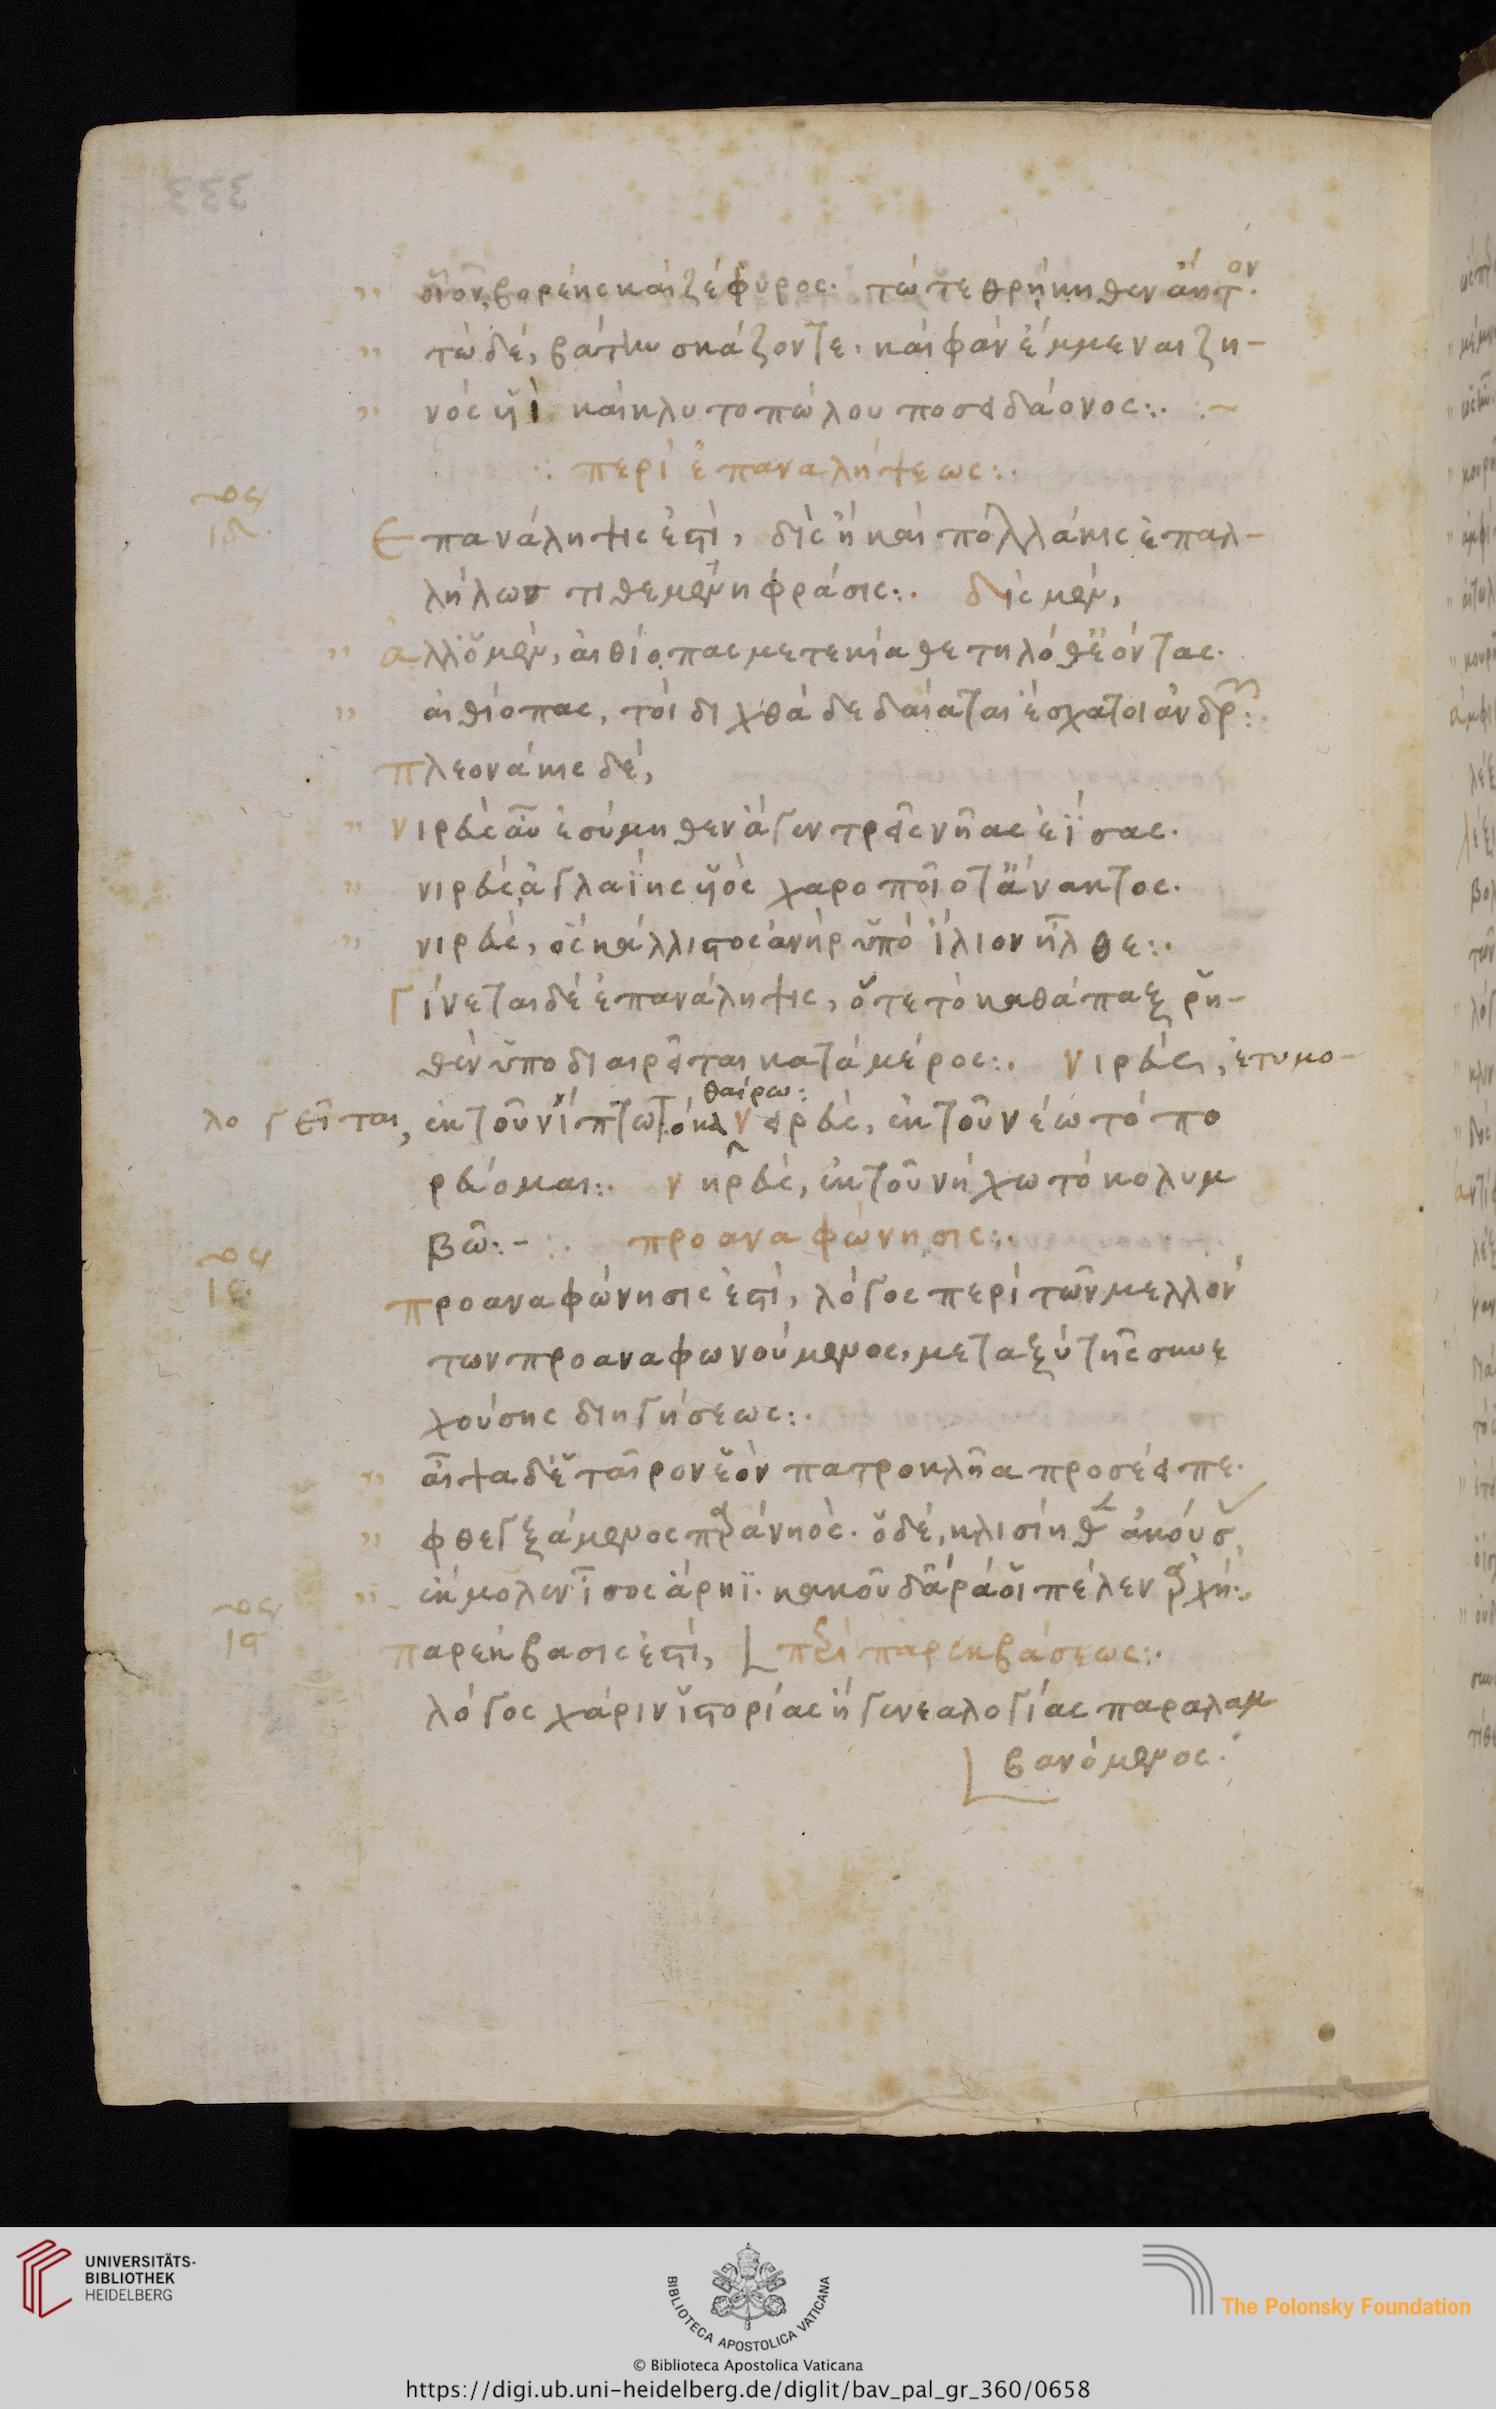 333
οἷον, βορέης καὶ ζέφυρος· τώ τε θρῄκηθεν ἄητον·
τὼ δέ, βάτην σκάζοντε· καὶ φὰν ἔμμεναι ζη-
νὸς ἠὲ καὶ κλυτοπώλου ποσειδάονος:·
περὶ ἐπαναλήψεως:·
ιδ·
Ἐπανάληψις ἐστὶ, δὶς ἢ καὶ πολλάκις ἐπαλ-
λήλων τιθεμένη φράσις:· δὶς μὲν,
ἀλλ' ὁ μὲν, αἰθίοπας μετεκίαθε τηλόθ' ἐόντας·
αἰθίοπας, τοὶ διχθὰ δεδαίαται ἔσχατοι ἀνδρῶν:·
πλεονάκις δέ,
νιρεὺς αὖ ἐσύμηθεν ἄγεν τρεῖς νῆας ἐΐσας·
νιρεὺς, ἀγλαΐης υἱὸς χαροποῖο τ' ἄνακτος·
νιρεὺς, ὃς κάλλιστος ἀνὴρ ὑπὸ ἴλιον ἦλθε:·
Γίνεται δὲ ἐπανάληψις, ὅτε τὸ καθάπαξ ῥη-
θὲν ὑποδιαιρεῖται κατὰ μέρος:· νιρεὺς, ἐτυμο-
θαίρω:
λογεῖται, ἐκ τοῦ νίπτω τὸ κα νειρεὺς, ἐκ τοῦ νέω τὸ πο
ρεύομαι:· νηρεὺς, ἐκ τοῦ νήχω τὸ κολυμ
βῶ:- :· προαναφώνησις:·
ιε·
προαναφώνησις ἐστὶ, λόγος περὶ τῶν μελλόν
των προαναφωνούμενος, μεταξὺ τῆς συνε
χούσης διηγήσεως:·
αἶψα δ' ἑταῖρον ἑὸν πατροκλῆα προσέειπε·
φθεγξάμενος παρὰ νηὸς· ὁ δὲ, κλισίηθεν ἀκούσας,
ἔκμολεν ἶσος ἄρηϊ· κακοῦ δ' ἄρα οἱ πέλεν ἀρχή:·
ιϛ
παρέκβασις ἐστὶ, περὶ παρεκβάσεως:·
λόγος χάριν ἱστορίας ἢ γενεαλογίας παραλαμ
βανόμενος·
UNIVERSITÄTS-
BIBLIOTHEK
HEIDELBERG
BIBLIOTECA APOSTOLICA VATICANA
The Polonsky Foundation
© Biblioteca Apostolica Vaticana
https://digi.ub.uni-heidelberg.de/diglit/bav_pal_gr_360/0658